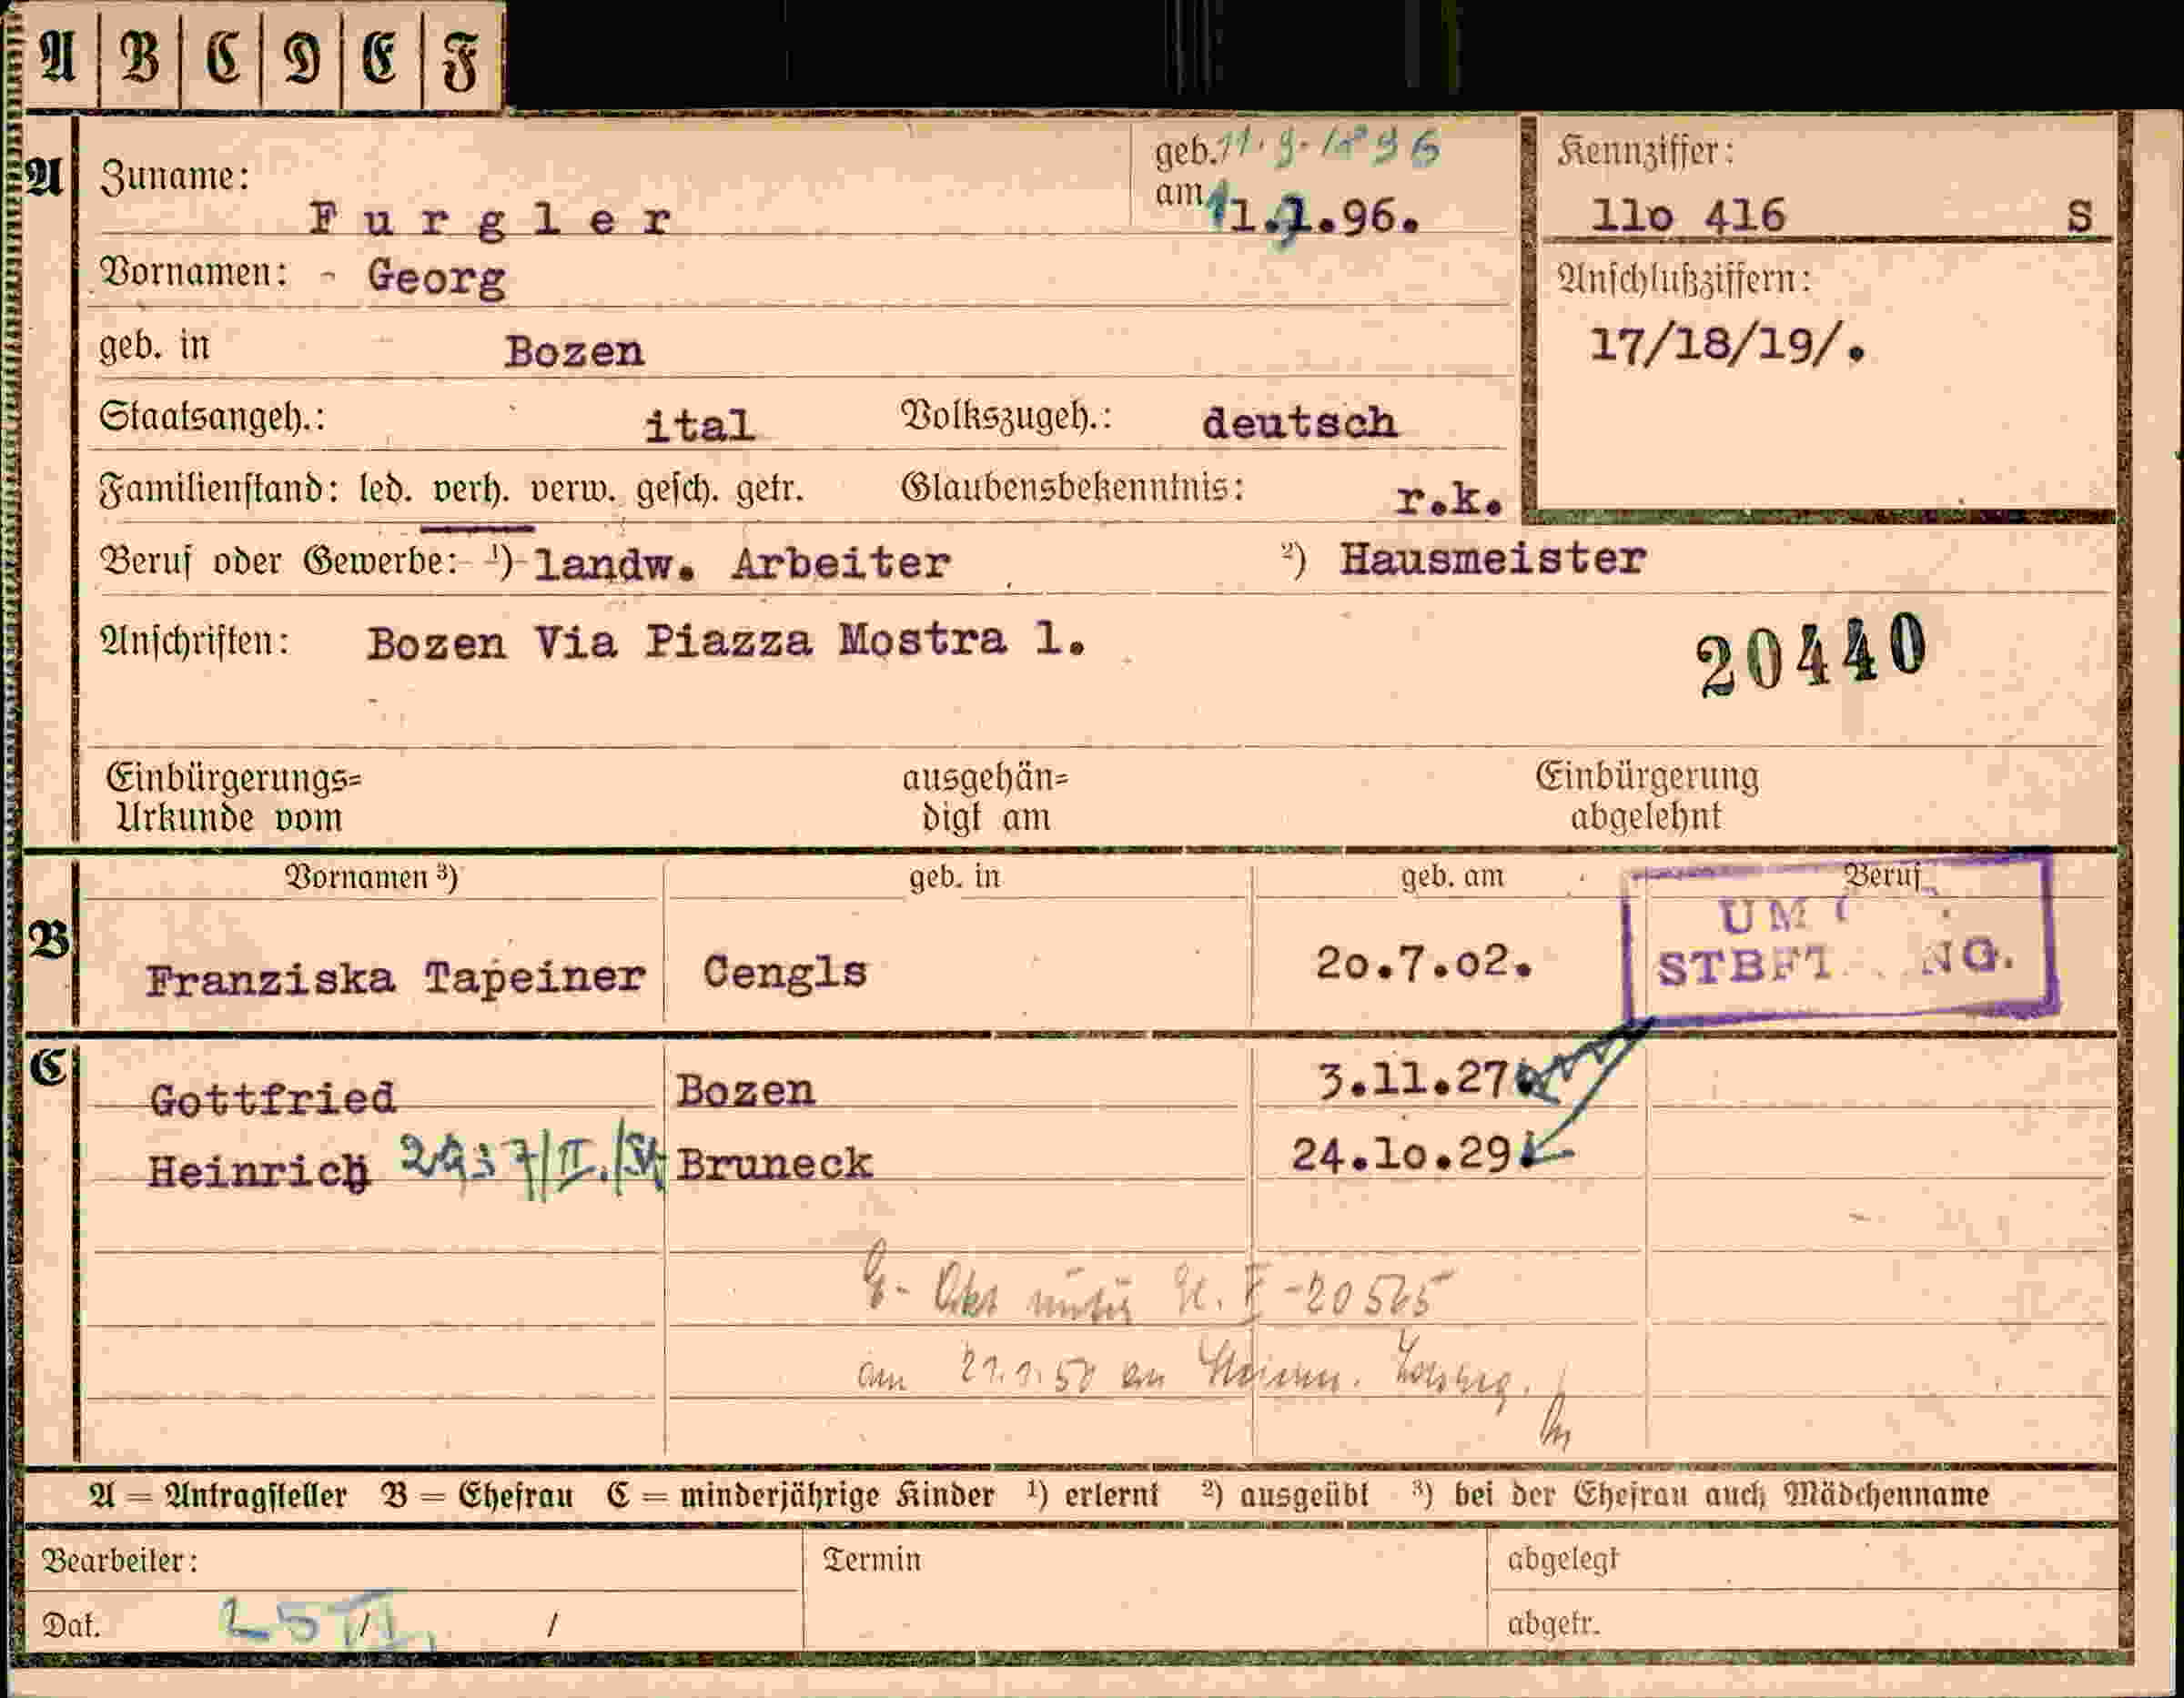 A B C D E F
A Zuname: Furgler geb. am 11.9.1896 11.9.96. Kennziffer: 11o 416 S
Vornamen: - Georg Anschlußziffern: 17/18/19/.
geb. in Bozen
Staatsangeh.: ital Volkszugeh.: deutsch
Familienstand: led. verh. verw. gesch. getr. Glaubensbekenntnis: r.k.
Beruf oder Gewerbe: ¹) landw. Arbeiter ²) Hausmeister
Anschriften: Bozen Via Piazza Mostra 1.
20440
Einbürgerungs= ausgehän= Einbürgerung
Urkunde vom digt am abgelehnt
Vornamen ³) geb. in geb. am Beruf
B Franziska Tapeiner Cengls 2o.7.o2.
C Gottfried Bozen 3.11.27.
Heinrich Bruneck 24.1o.29.
-20525
am
A = Antragsteller B = Ehefrau C = minderjährige Kinder ¹) erlernt ²) ausgeübt ³) bei der Ehefrau auch Mädchenname
Bearbeiter: Termin abgelegt
Dat. / / abgetr.